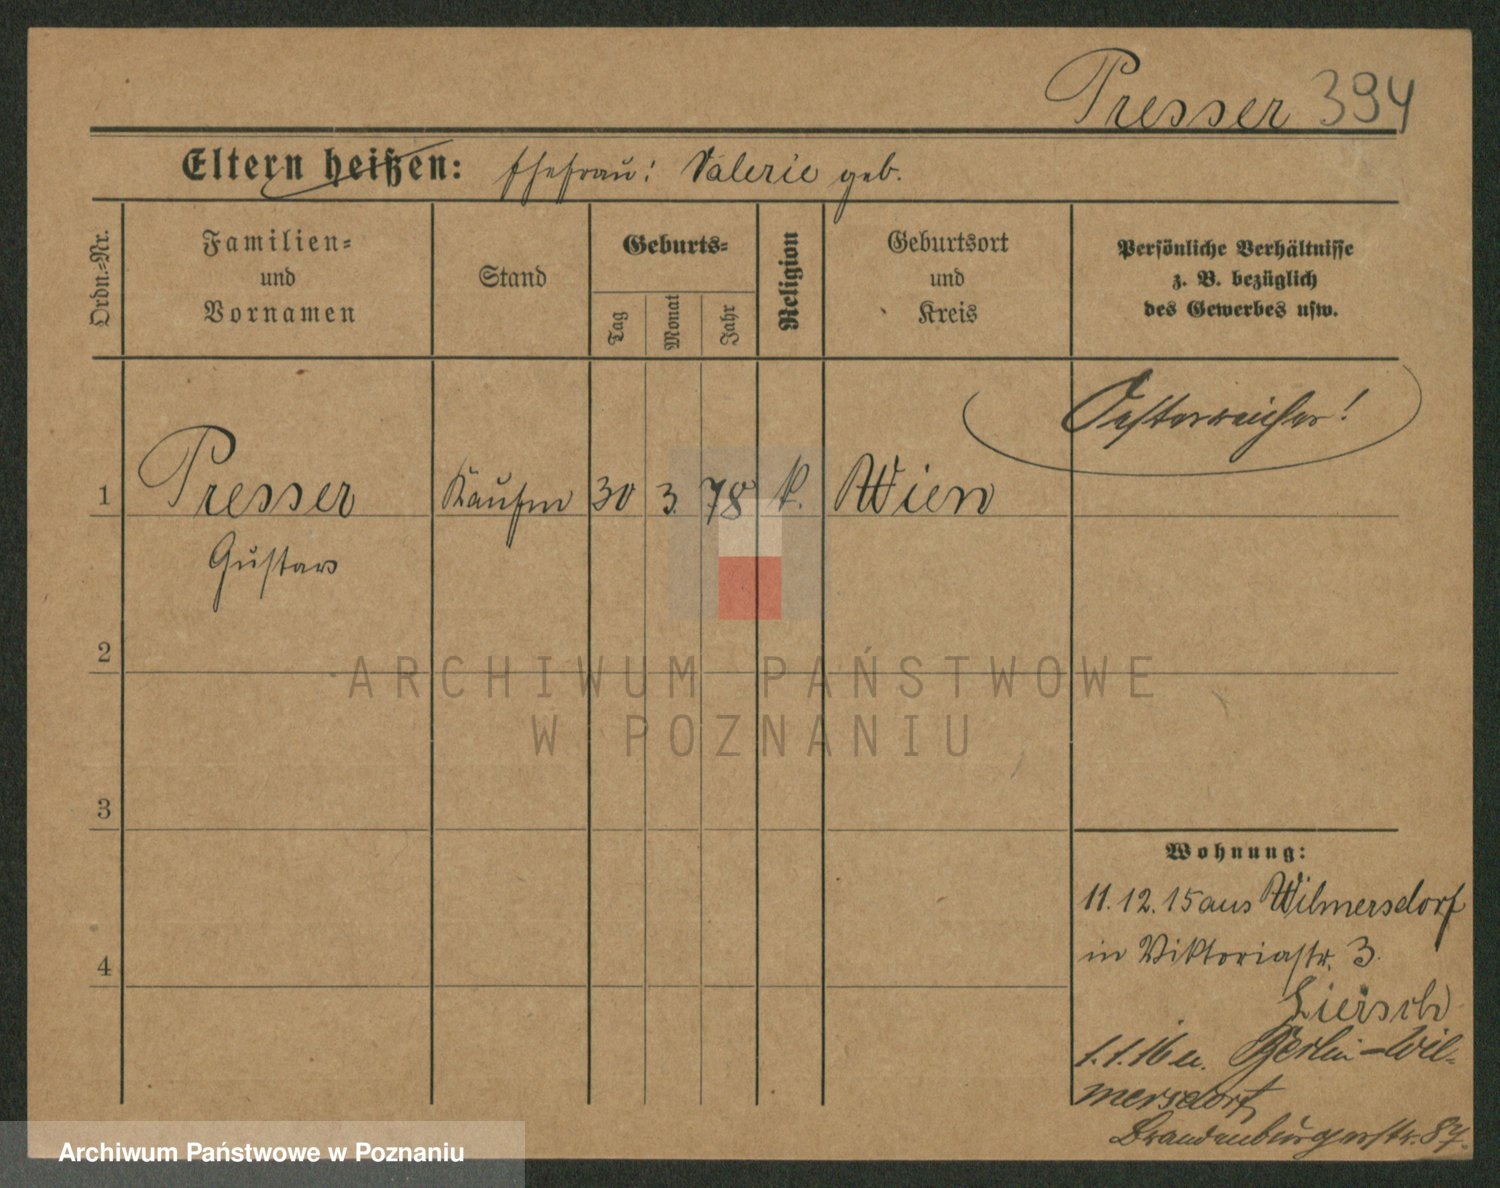 Presser 394
Eltern heißen: Ehefrau: Valerie geb.
Ordn.=Nr.
Familien=
und
Vornamen
Stand
Geburts=
Tag
Monat
Jahr
Religion
Geburtsort
und
Kreis
Persönliche Verhältnisse
z. B. bezüglich
des Gewerbes usw.
Oesterreicher!
1 Presser Kaufm 30 3. 78 k. Wien
Gustav
2
3
4
Wohnung:
11.12.15 aus Wilmersdorf
in Viktoriastr. 3.
Liersch
1.1.16 n. Berlin-Wil-
mersdorf
Brandenburgerstr. 87.
ARCHIWUM PAŃSTWOWE
W POZNANIU
Archiwum Państwowe w Poznaniu